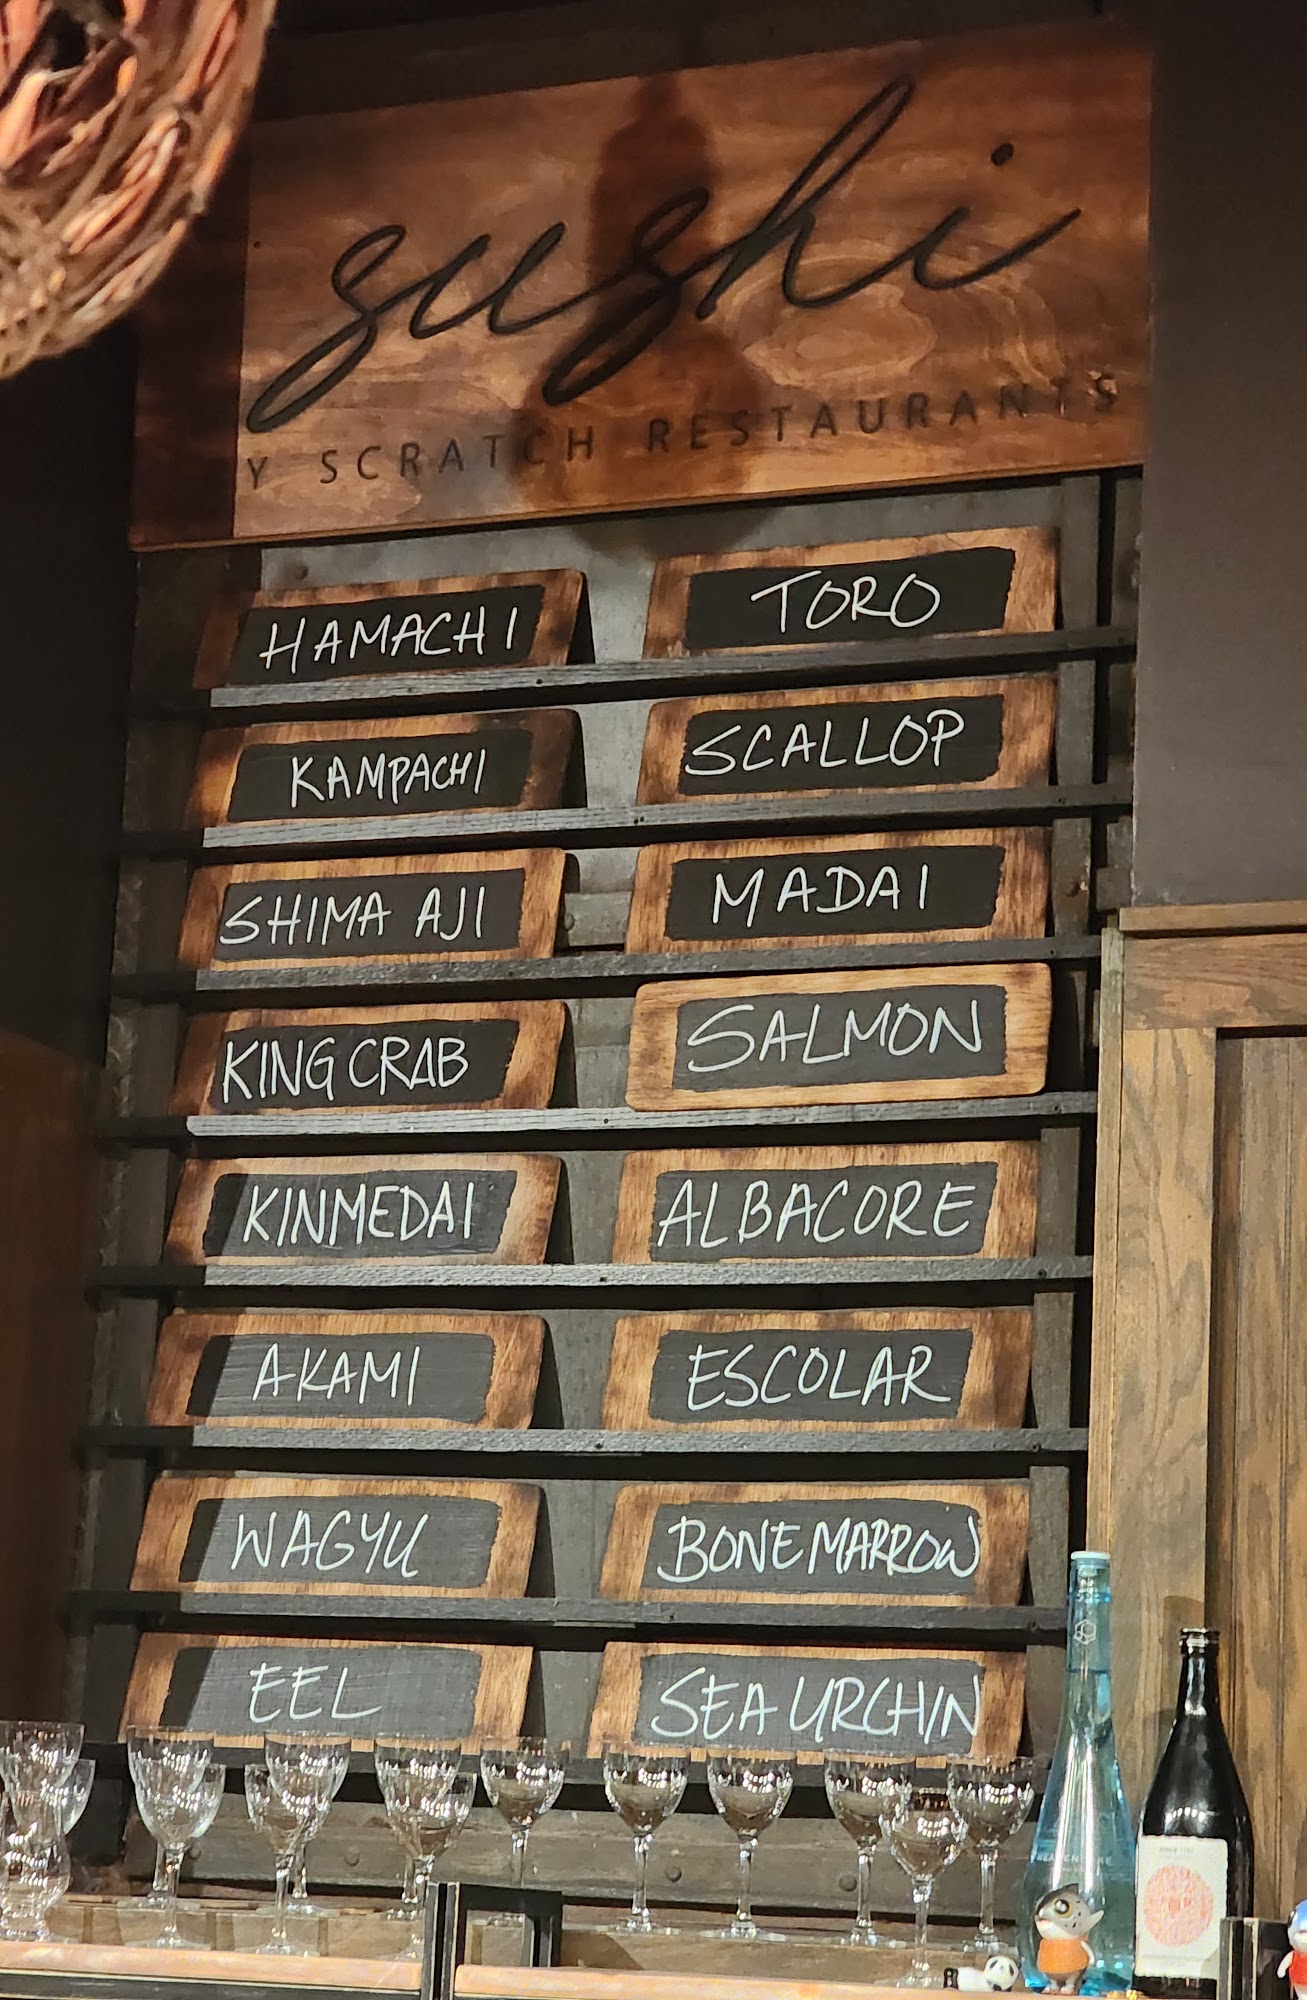 sushi
Y SCRATCH RESTAURANTS
HAMACHI
TORO
KAMPACHI
SCALLOP
SHIMA AJI
MADAI
KING CRAB
SALMON
KINMEDAI
ALBACORE
AKAMI
ESCOLAR
WAGYU
BONE MARROW
EEL
SEA URCHIN